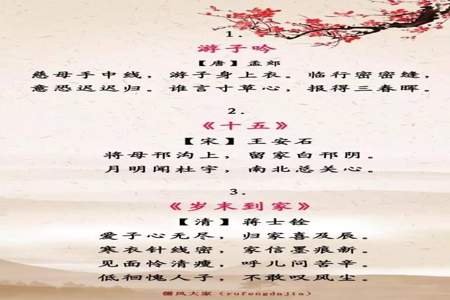 1.
游子吟
【唐】孟郊
慈母手中线，游子身上衣。临行密密缝，
意恐迟迟归。谁言寸草心，报得三春晖。
2.
《十五》
【宋】王安石
将母邗沟上，留家白邗阴。
月明闻杜宇，南北总关心。
3.
《岁末到家》
【清】蒋士铨
爱子心无尽，归家喜及辰。
寒衣针线密，家信墨痕新。
见面怜清瘦，呼儿问苦辛。
低徊愧人子，不敢叹风尘。
儒风大家（rufengdajia）